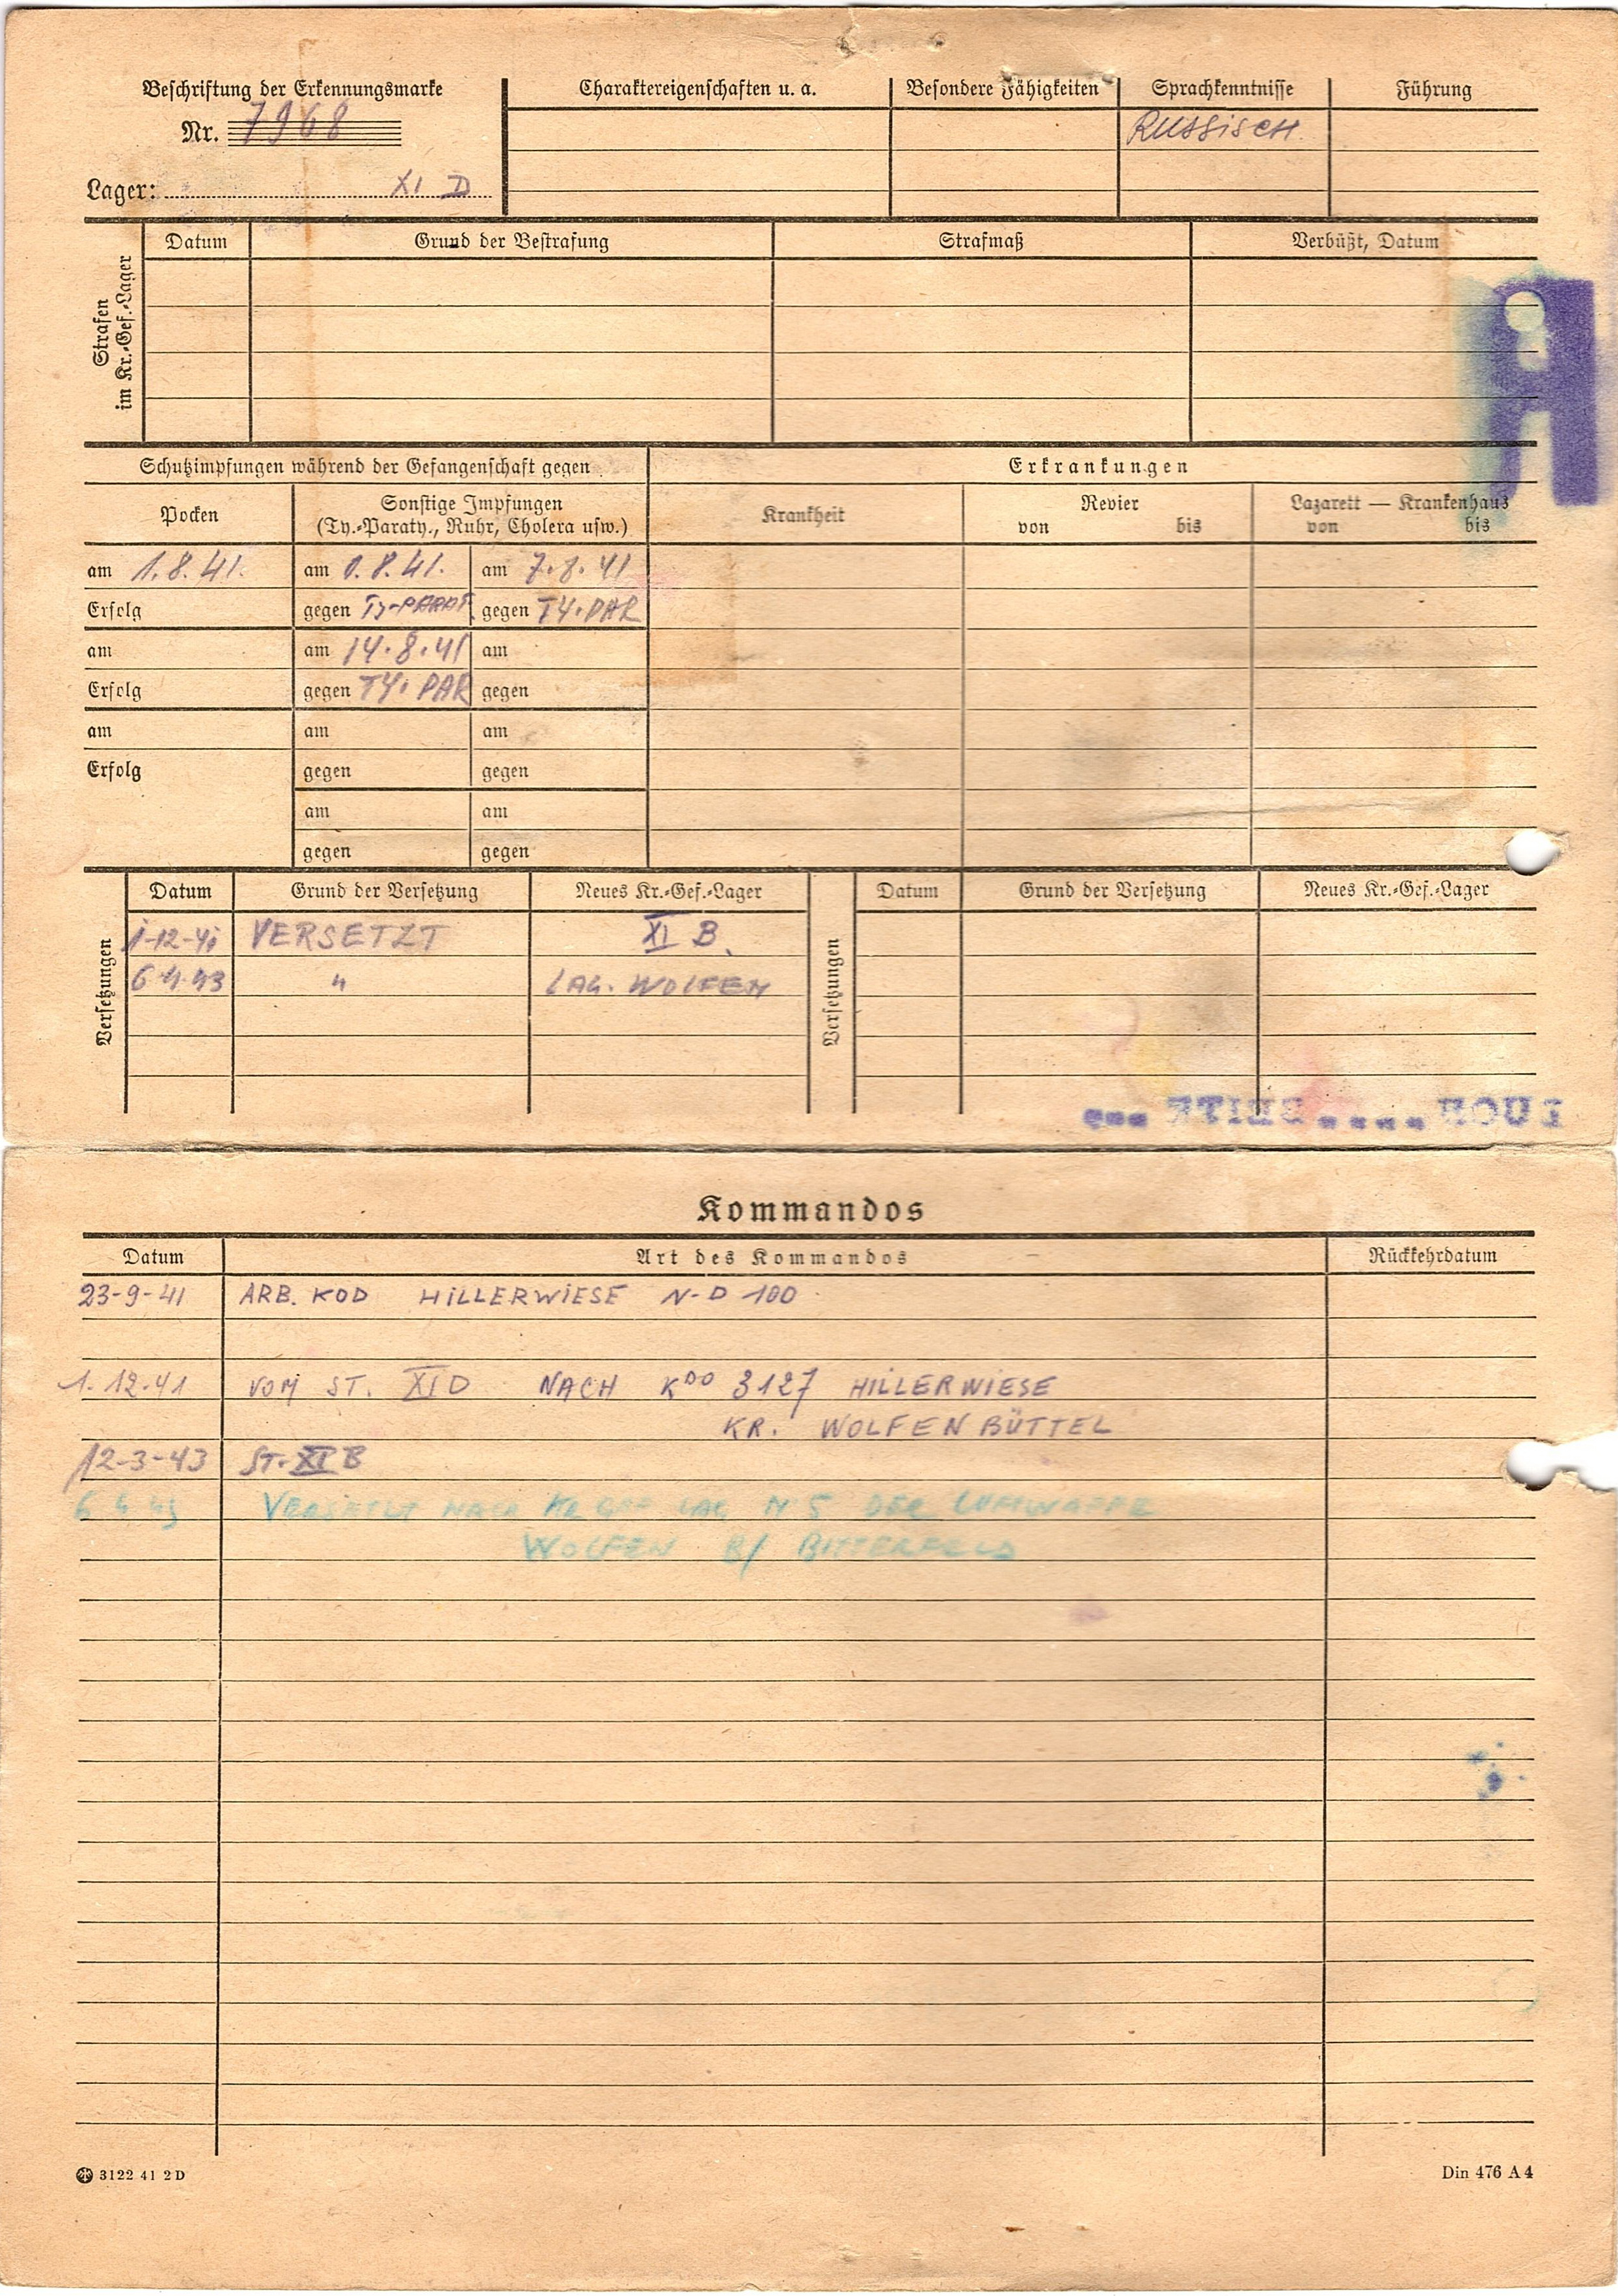 Beschriftung der Erkennungsmarke
Nr. 7968
Lager: XI D
Charaktereigenschaften u. a.
Besondere Fähigkeiten
Sprachkenntnisse
Führung
RUSSISCH
Strafen
im Kr.-Gef.-Lager
Datum
Grund der Bestrafung
Strafmaß
Verbüßt, Datum
Schutzimpfungen während der Gefangenschaft gegen
Erkrankungen
Pocken
Sonstige Impfungen
(Ty.-Paraty., Ruhr, Cholera usw.)
Krankheit
Revier
von bis
Lazarett — Krankenhaus
von bis
am 1.8.41. am 1.8.41. am 7.8.41
Erfolg gegen TY-PARAT. gegen TY.PAR
am am 14.8.41 am
Erfolg gegen TY. PAR gegen
am am am
Erfolg gegen gegen
am am
gegen gegen
Versetzungen
Datum Grund der Versetzung Neues Kr.-Gef.-Lager
1-12-41 VERSETZT XI B.
6.4.43 " LAG. WOLFEN
Versetzungen
Datum Grund der Versetzung Neues Kr.-Gef.-Lager
Kommandos
Datum Art des Kommandos Rückkehrdatum
23-9-41 ARB. KOD HILLERWIESE N-D 100
1.12.41 VOM ST. XI D NACH KDO 3127 HILLERWIESE
KR. WOLFENBÜTTEL
12-3-43 ST. XI B
6 4 43 VERSETZT NACH KR GEF LAG N 5 DER LUFTWAFFE
WOLFEN B/ BITTERFELD
3122 41 2 D
Din 476 A 4